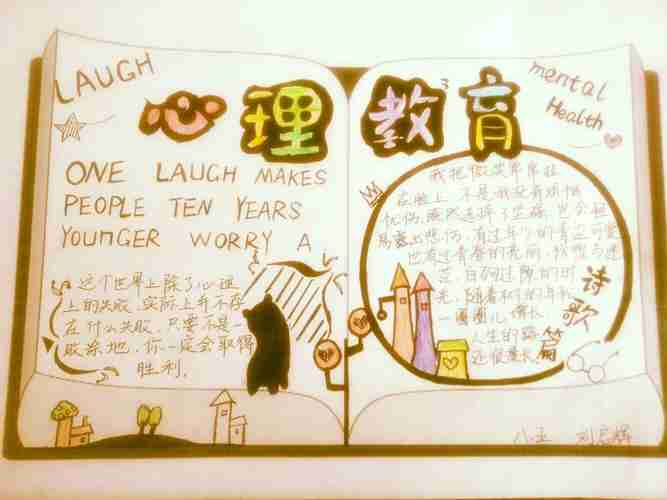 LAUGH
心理教育
mental
Health
ONE LAUGH MAKES
PEOPLE TEN YEARS
YOUNGER WORRY A
这个世界上除了心理
上的失败,实际上并不存
在什么失败,只要不是一
败涂地,你一定会取得
胜利。
我把微笑牢牢挂
在脸上,不是我没有烦恼
忧伤,虽然选择了坚强,也会轻
易染上悲伤,有过年少的青涩可爱
也有过青春的亮丽,
光,随着树的年轮
一圈圈儿增长
人生的路
还很漫长
诗歌篇
八五